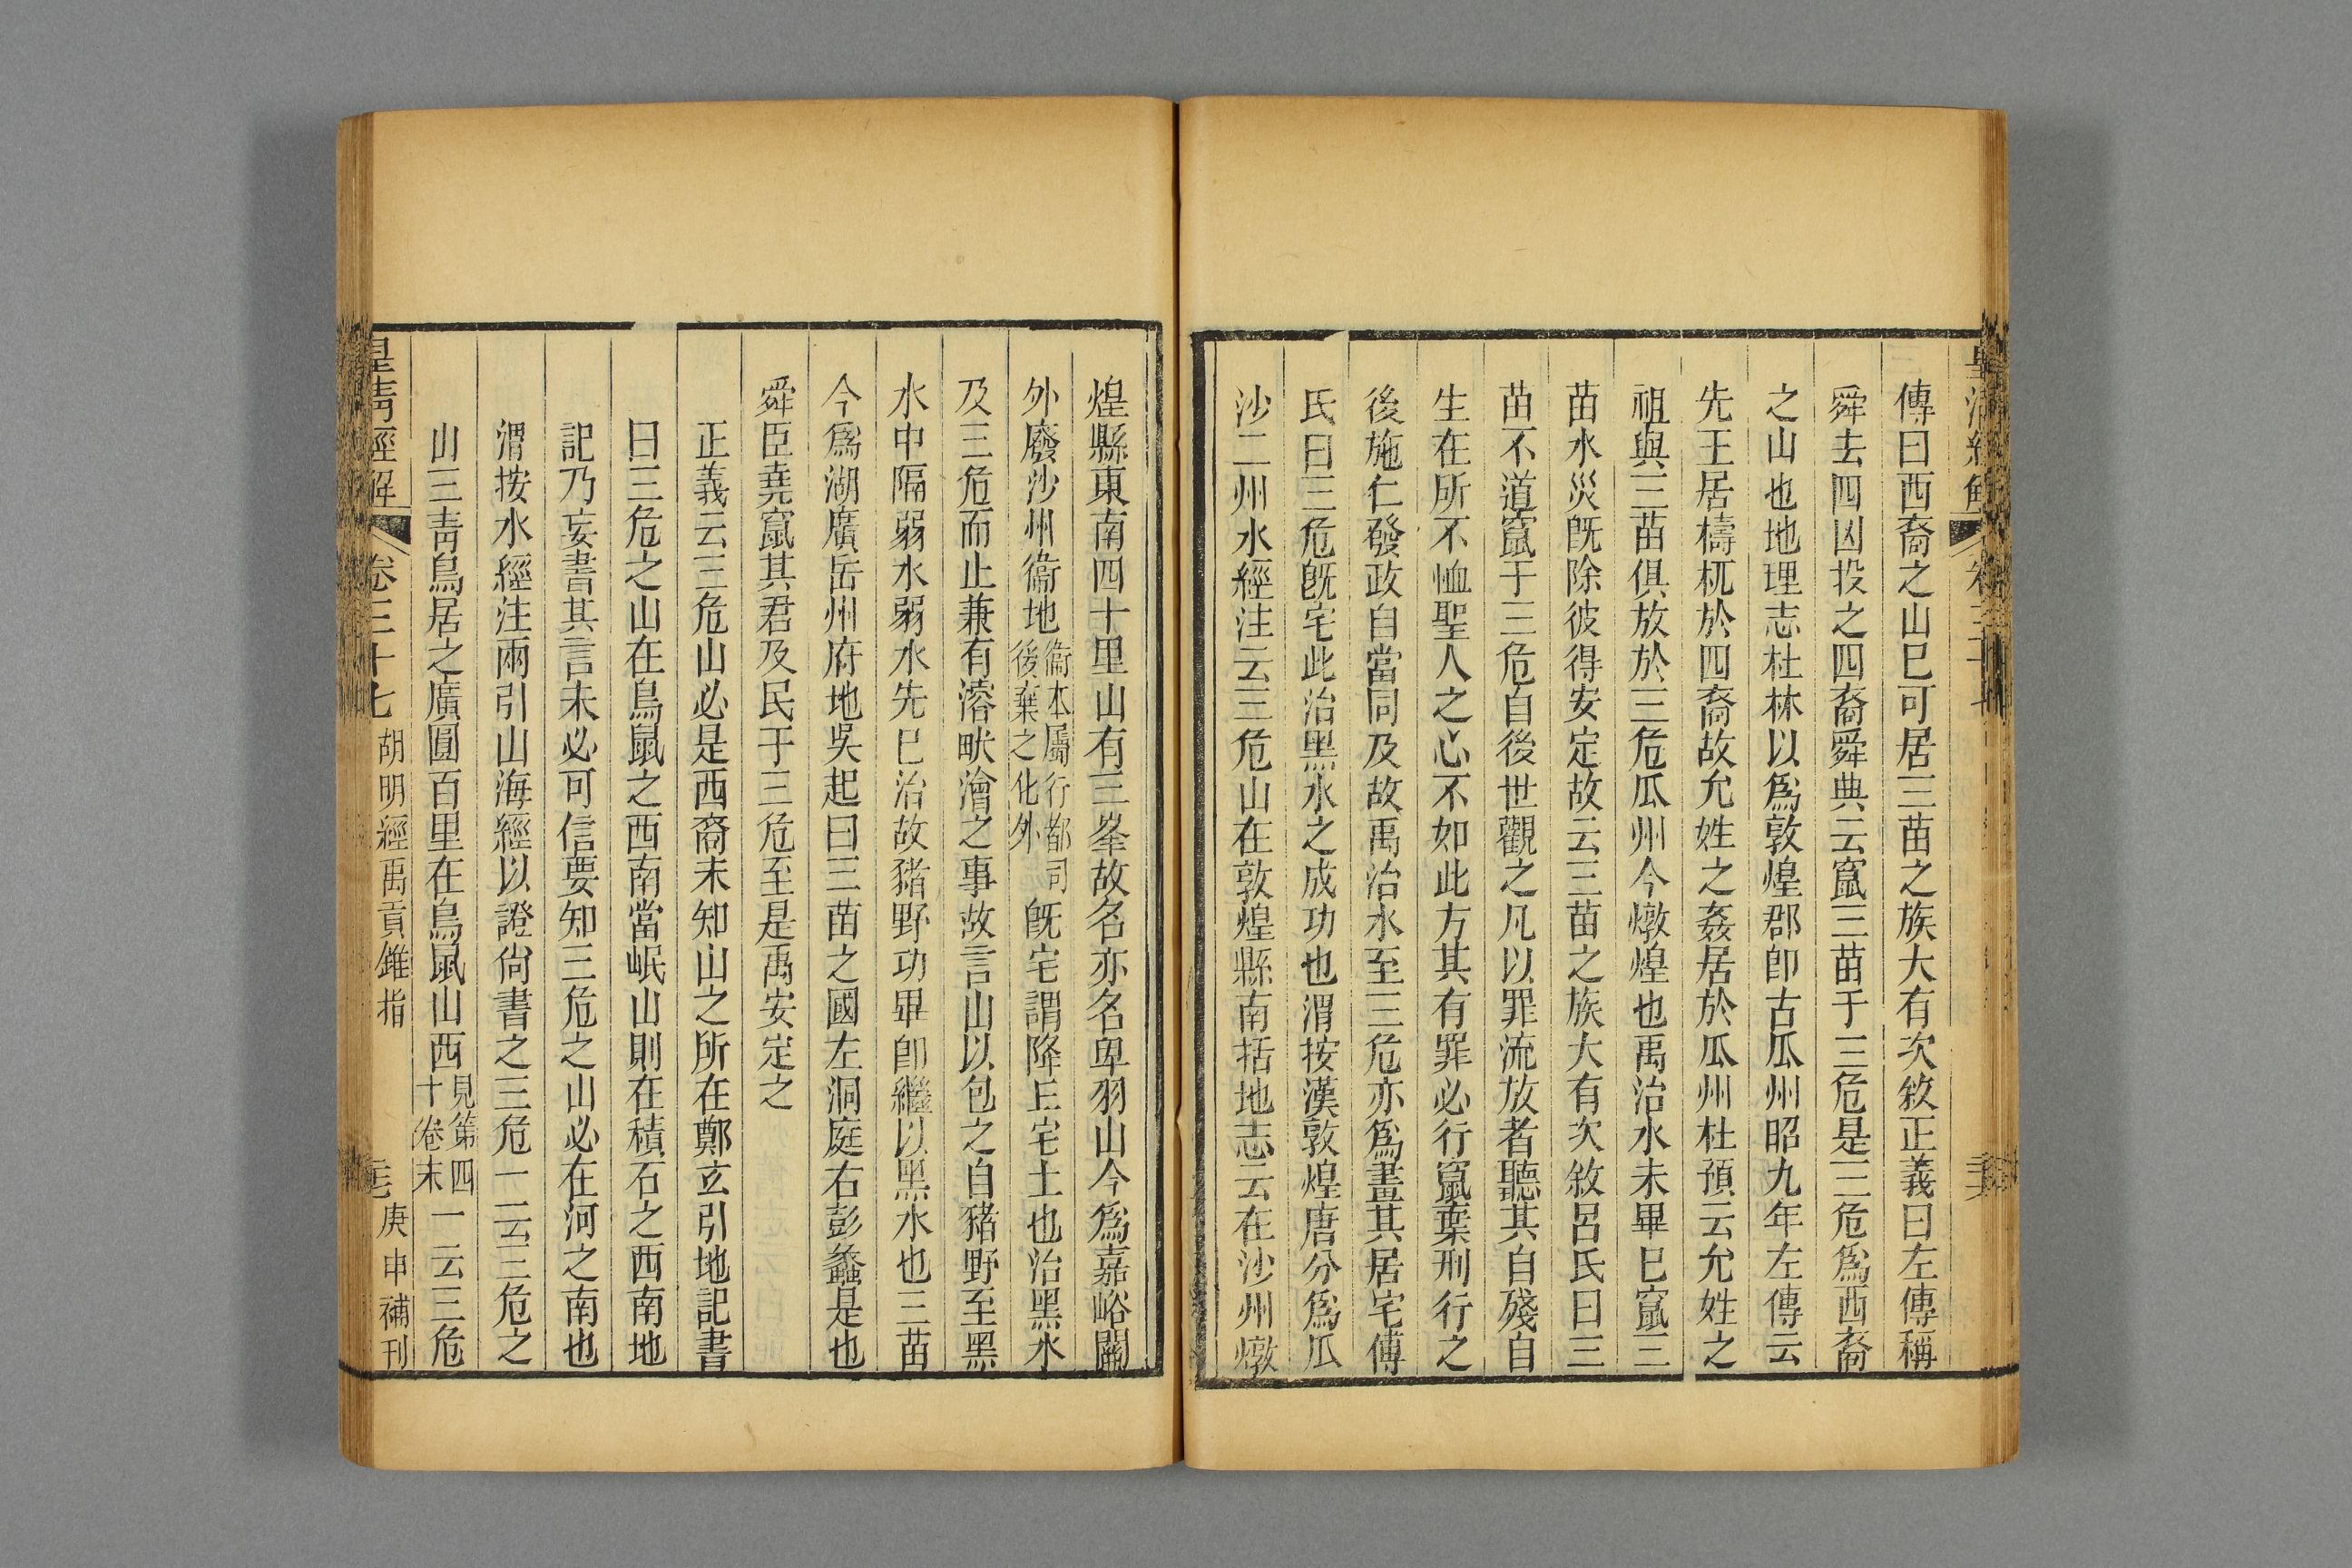 傳曰西裔之山已可居三苗之族大有次敘正義曰左傳稱
舜去四凶投之四裔舜典云竄三苗于三危是三危爲西裔
之山也地理志杜林以爲敦煌郡卽古瓜州昭九年左傳云
先王居檮杌於四裔故允姓之姦居於瓜州杜預云允姓之
祖與三苗俱放於三危瓜州今燉煌也禹治水未畢已竄三
苗水災旣除彼得安定故云三苗之族大有次敘呂氏曰三
苗不道竄于三危自後世觀之凡以罪流放者聽其自殘自
生在所不恤聖人之心不如此方其有罪必行竄棄刑行之
後施仁發政自當同及故禹治水至三危亦爲畫其居宅傅
氏曰三危旣宅此治黑水之成功也渭按漢敦煌唐分爲瓜
沙二州水經注云三危山在敦煌縣南括地志云在沙州燉
煌縣東南四十里山有三峯故名亦名卑羽山今爲嘉峪關
外廢沙州衞地衞本屬行都司後棄之化外旣宅謂降丘宅土也治黑水
及三危而止兼有濬畎澮之事故言山以包之自豬野至黑
水中隔弱水弱水先已治故豬野功畢卽繼以黑水也三苗
今爲湖廣岳州府地吳起曰三苗之國左洞庭右彭蠡是也
舜臣堯竄其君及民于三危至是禹安定之
正義云三危山必是西裔未知山之所在鄭玄引地記書
曰三危之山在鳥鼠之西南當岷山則在積石之西南地
記乃妄書其言未必可信要知三危之山必在河之南也
渭按水經注兩引山海經以證尙書之三危一云三危之
山三青鳥居之廣圓百里在鳥鼠山西見第四十卷末一云三危
皇清經解 卷三十七 胡明經禹貢錐指 庚申補刊